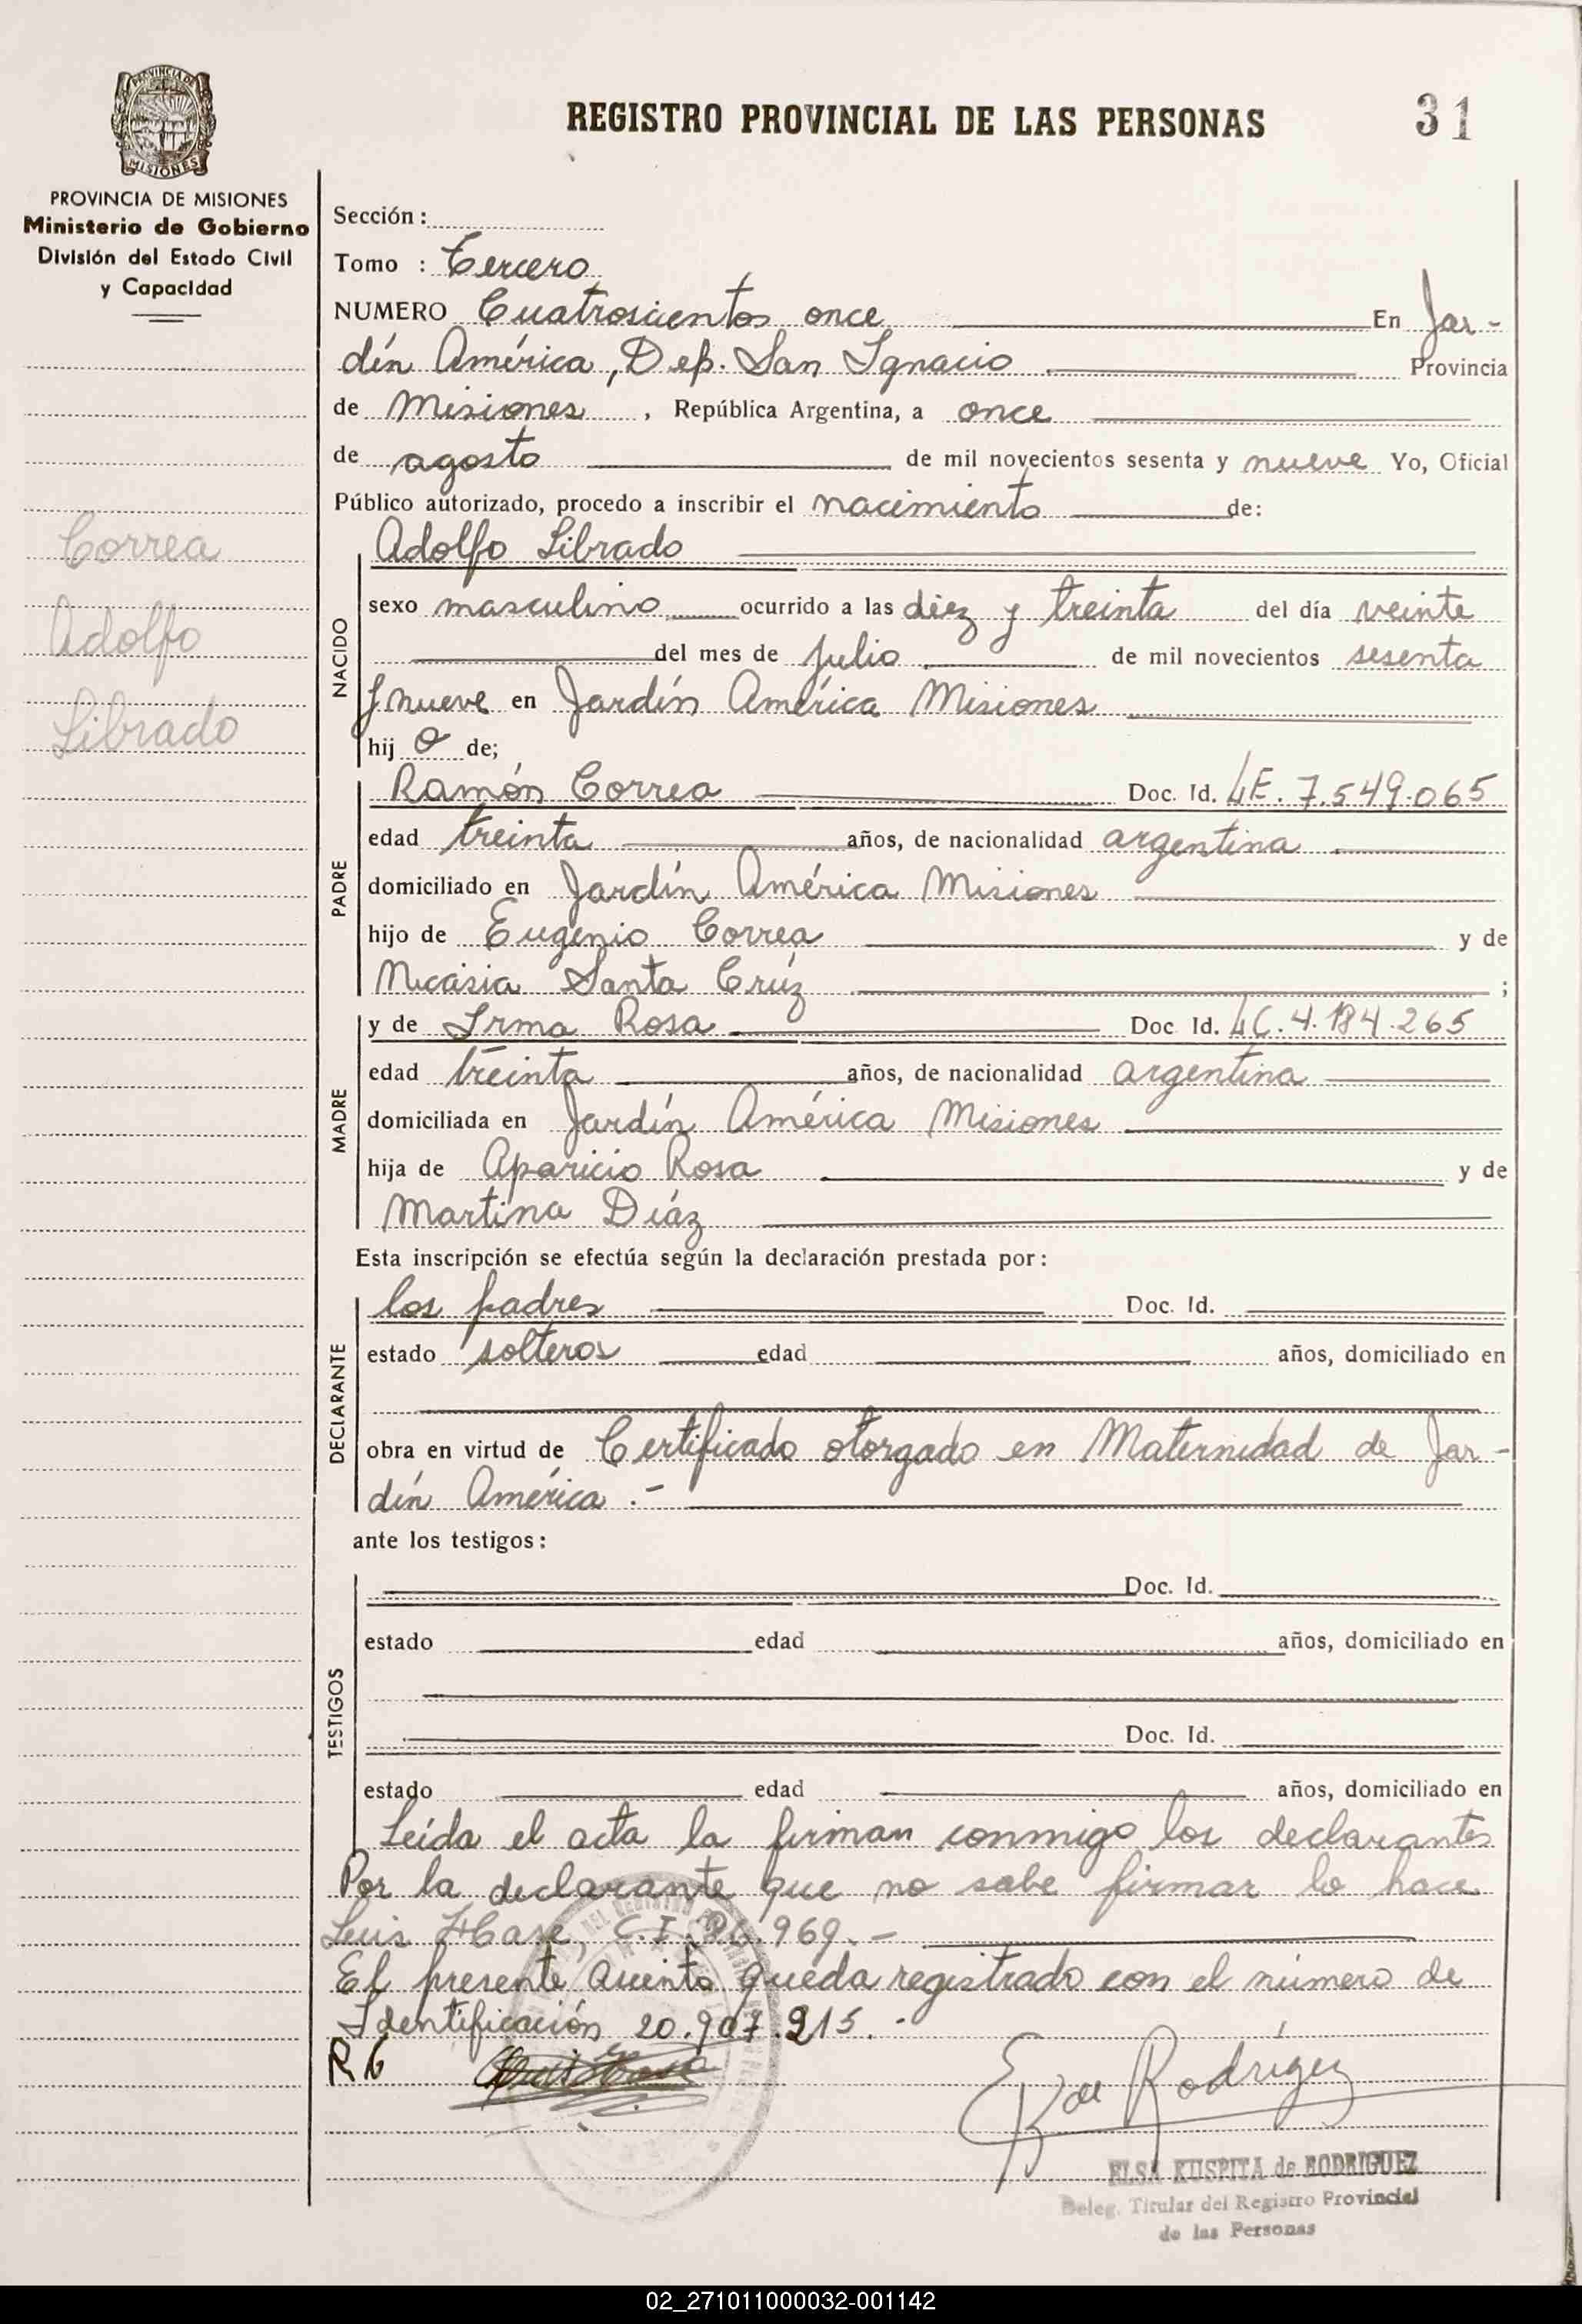 PROVINCIA DE
MISIONES
PROVINCIA DE MISIONES
Ministerio de Gobierno
División del Estado Civil
y Capacidad
REGISTRO PROVINCIAL DE LAS PERSONAS
31
Correa
Adolfo
Librado
Sección:
Tomo : Tercero
NUMERO Cuatroscientos once En Jar-
dín América, Dep. San Ignacio Provincia
de Misiones , República Argentina, a once
de agosto de mil novecientos sesenta y nueve Yo, Oficial
Público autorizado, procedo a inscribir el nacimiento de:
Adolfo Librado
NACIDO
sexo masculino ocurrido a las diez y treinta del día veinte
del mes de julio de mil novecientos sesenta
y nueve en Jardín América Misiones
hij o de;
PADRE
Ramón Correa Doc. Id. LE. 7.549.065
edad treinta años, de nacionalidad argentina
domiciliado en Jardín América Misiones
hijo de Eugenio Correa y de
Nicasia Santa Crúz ;
MADRE
y de Irma Rosa Doc Id. LC. 4.184.265
edad treinta años, de nacionalidad argentina
domiciliada en Jardín América Misiones
hija de Aparicio Rosa y de
Martina Diáz
Esta inscripción se efectúa según la declaración prestada por:
DECLARANTE
los padres Doc. Id.
estado solteros edad años, domiciliado en
obra en virtud de Certificado otorgado en Maternidad de Jar-
dín América .-
ante los testigos:
TESTIGOS
Doc. Id.
estado edad años, domiciliado en
Doc. Id.
estado edad años, domiciliado en
Leída el acta la firman conmigo los declarantes
Por la declarante que no sabe firmar lo hace
Luis Hase, C.I. .969.-
El presente asiento queda registrado con el número de
Identificación 20.907.215.-
R G
E K de Rodríguez
ELSA KUSPITA de RODRIGUEZ
Deleg. Titular del Registro Provincial
de las Personas
02_271011000032-001142